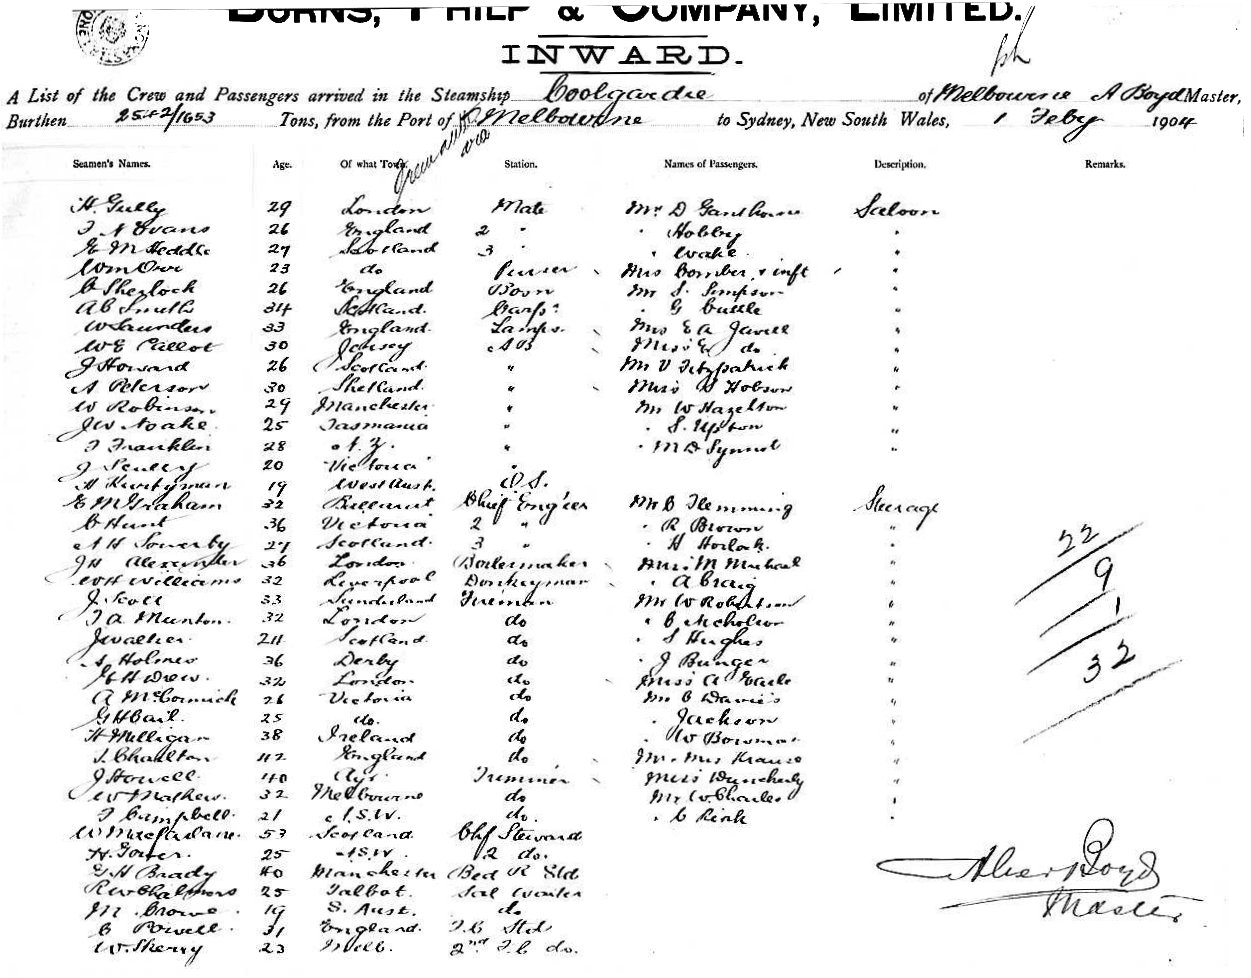 BURNS, PHILP & COMPANY, LIMITED.
INWARD.
A List of the Crew and Passengers arrived in the Steamship Coolgardie of Melbourne A Boyd Master,
Burthen 2542/1653 Tons, from the Port of Melbourne to Sydney, New South Wales, 1 Feby 1904
Seamen's Names. Age. Of what Town. Station. Names of Passengers. Description. Remarks.
H. Gully 29 London Mate Mr D Saloon
T N Evans 26 England 2 " " Hobby "
E M Heddle 27 Scotland 3 " " Wake "
Wm Orr 23 do Purser Mrs Bomber & inft "
C Sherlock 26 England Bosn Mr S. Simpson "
A B Smith 34 Scotland. Carpr " G Cuttle "
W Saunders 33 England. Lamps. Mrs E A Jewell "
W E Callot 30 Jersey A B Miss E do "
J Howard 26 Scotland " Mr V Fitzpatrick "
A Peterson 30 Shetland. " Miss Hobson "
W Robinson 29 Manchester " Mr W Hazelton "
J W Noake. 25 Tasmania " " S. Upton "
T Franklin 28 N. Z. " " M D Synnot "
J Scully 20 Victoria "
H 19 West Aust. O. S.
E McGraham 32 Ballarat Chief Engineer Mr C Flemming Steerage
C Hunt 36 Victoria 2 " " R Brown "
A H Sowerby 27 Scotland. 3 " " H Horlock. " 22
J H Alexander 36 London Boilermaker Miss M Micheal "
W H Williams 32 Liverpool Donkeyman " A Craig " 9
J. Scott 33 Sunderland Fireman Mr W Robertson "
T. A. Munton. 32 London do " C Nicholson " 1
J Walker. 24 Scotland do " S Hughes "
S Holmes 36 Derby do " J Bunger " 32
G H Drew. 32 London do Miss A Earle "
A McCormick 26 Victoria do Mr C Davies "
G H Cail. 25 do. do " Jackson "
H Milligan 38 Ireland do " W Bowman "
T. Charlton 42 England do Mr & Mrs Krause "
J Howell. 40 Ayr Trimmer Miss "
W Mathew. 32 Melbourne do Mr W. Charles "
T Campbell. 21 N.S.W. do. " C Rink "
W Macfarlane. 53 Scotland Chf Steward
H. Tower. 25 N.S.W. 2 do.
G H Brady 40 Manchester Bed R Std
R W Chalmers 25 Talbot. Sal Waiter
M. Crowe 19 S. Aust. do
C Powell. 31 England. F. C Std
W. Sherry 23 Melb. 2nd F. C do.
Boyd
Master